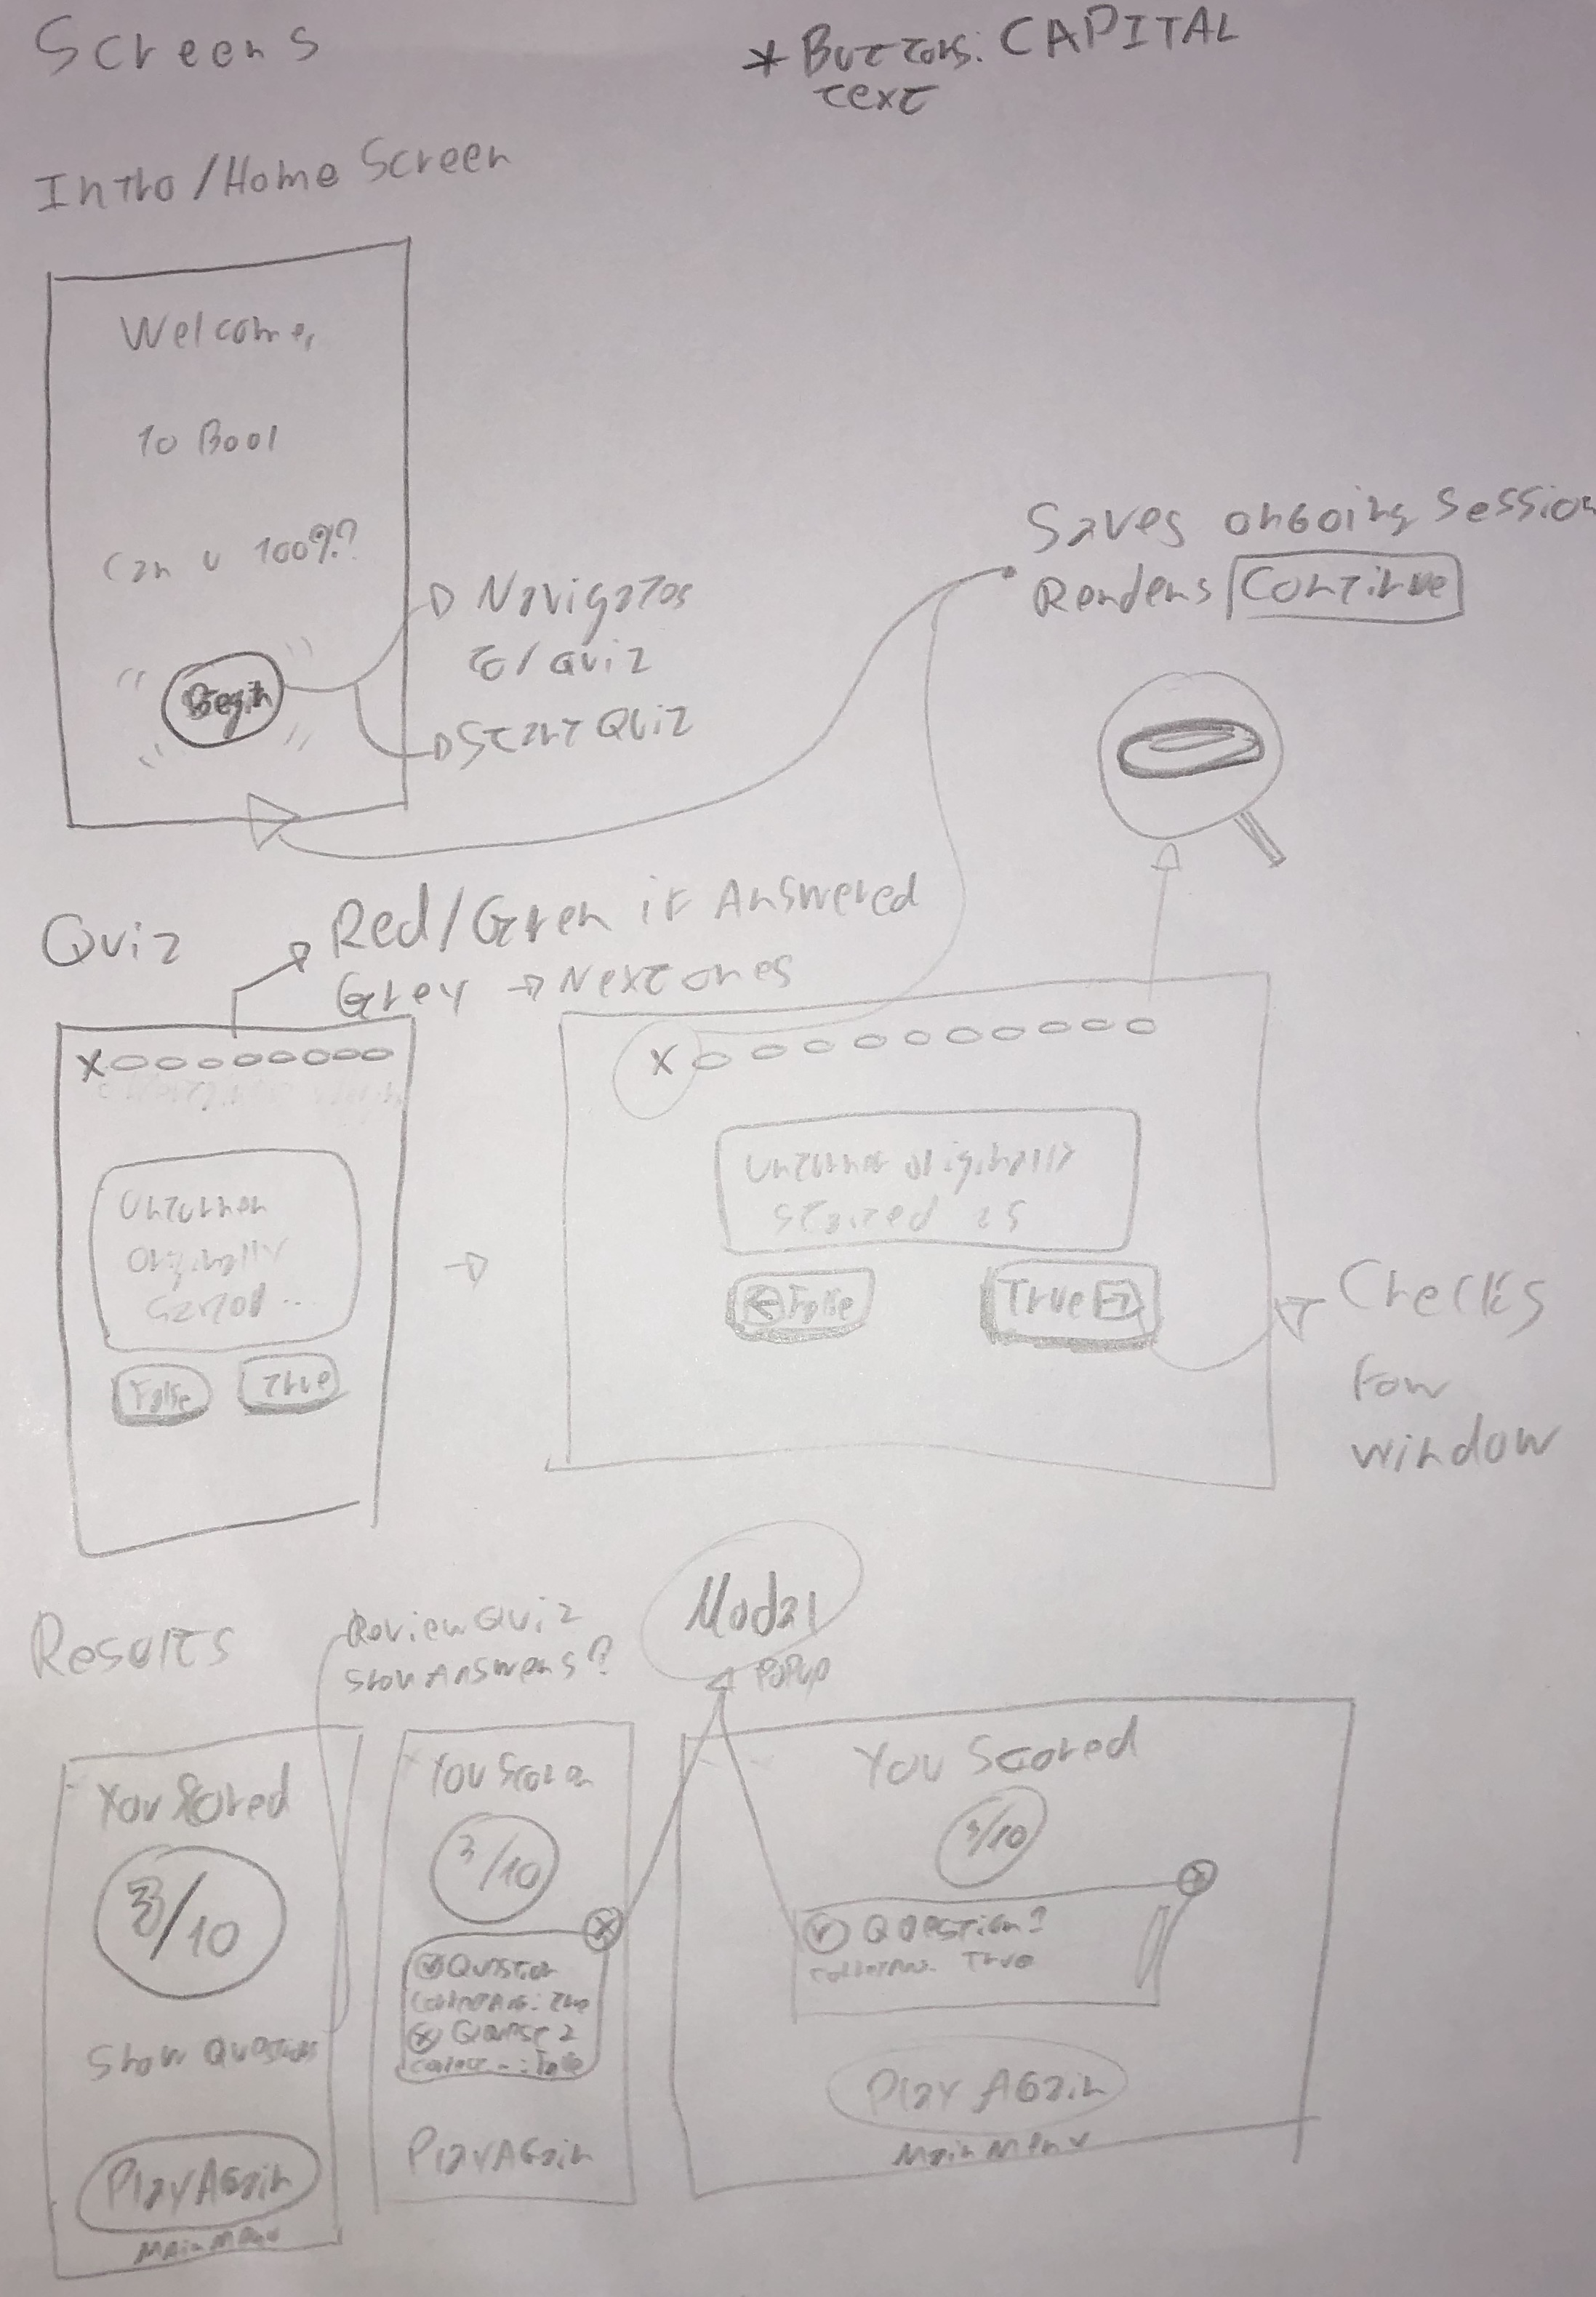 Screens
* Buttons: CAPITAL
text
Intro/Home Screen
Welcome,
To Bool
Can u 100%?
Begin
Navigates
to /quiz
Start Quiz
Saves ongoing session
Renders Continue
Quiz
Red/Green if Answered
Grey → Next ones
X
originally
False
True
X
originally
started as
← False
True →
Checks
for
window
Results
Review Quiz
Show Answers?
Modal
Popup
You Scored
3/10
Show Questions
Play Again
Main Menu
You Score
3/10
X
Question
Correct Ans: True
X
Correct ..: False
Play Again
You Scored
3/10
X
Question?
True
Play Again
Main Menu